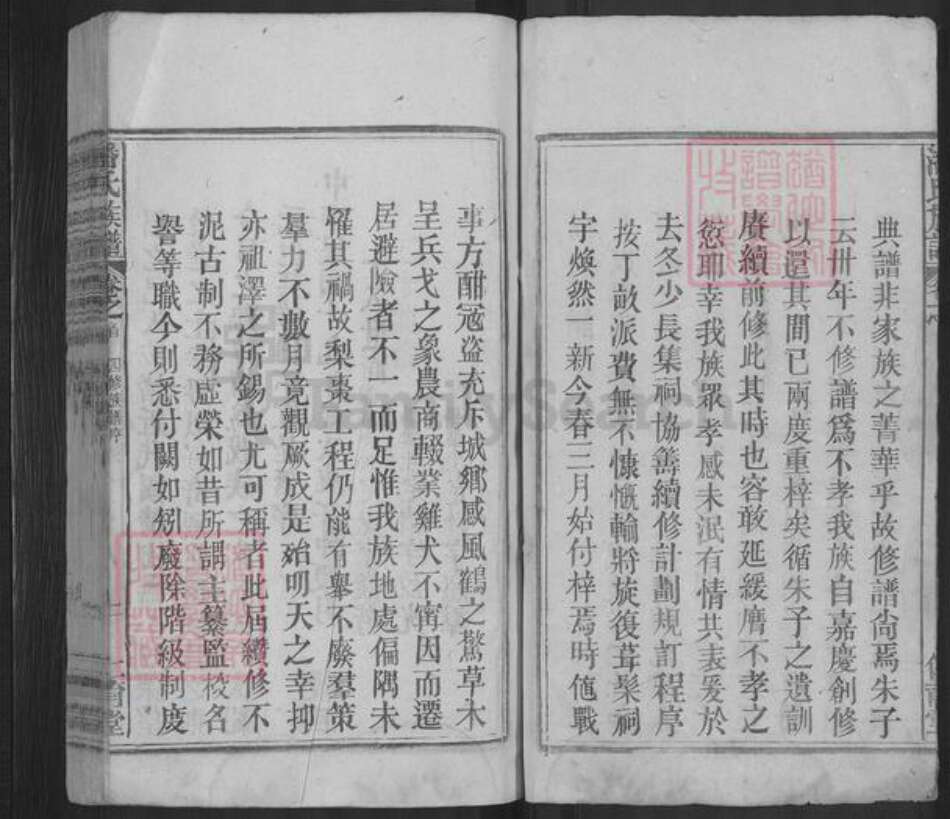 典譜非家族之菁華乎故修譜尚焉朱子
云卅年不修譜爲不孝我族自嘉慶創修
以還其間已兩度重梓矣循朱子之遺訓
賡續前修此其時也容敢延緩膺不孝之
愆耶幸我族眾孝感未泯有情共表爰於
去冬少長集祠協籌續修計劃規訂程序
按丁畝派費無不慷慨輸將旋復葺髹祠
宇煥然一新今春三月始付梓焉時值戰
事方酣寇盜充斥城鄉感風鶴之驚草木
呈兵戈之象農商輟業雞犬不甯因而遷
居避險者不一而足惟我族地處偏隅未
罹其禍故梨棗工程仍能有舉不廢羣策
羣力不數月竟觀厥成是殆叨天之幸抑
亦祖澤之所錫也尤可稱者此屆續修不
泥古制不務虛榮如昔所謂主纂監校名
譽等職今則悉付闕如矧廢除階級制度
潘氏族譜
卷之首
四修族譜序
FamilySearch